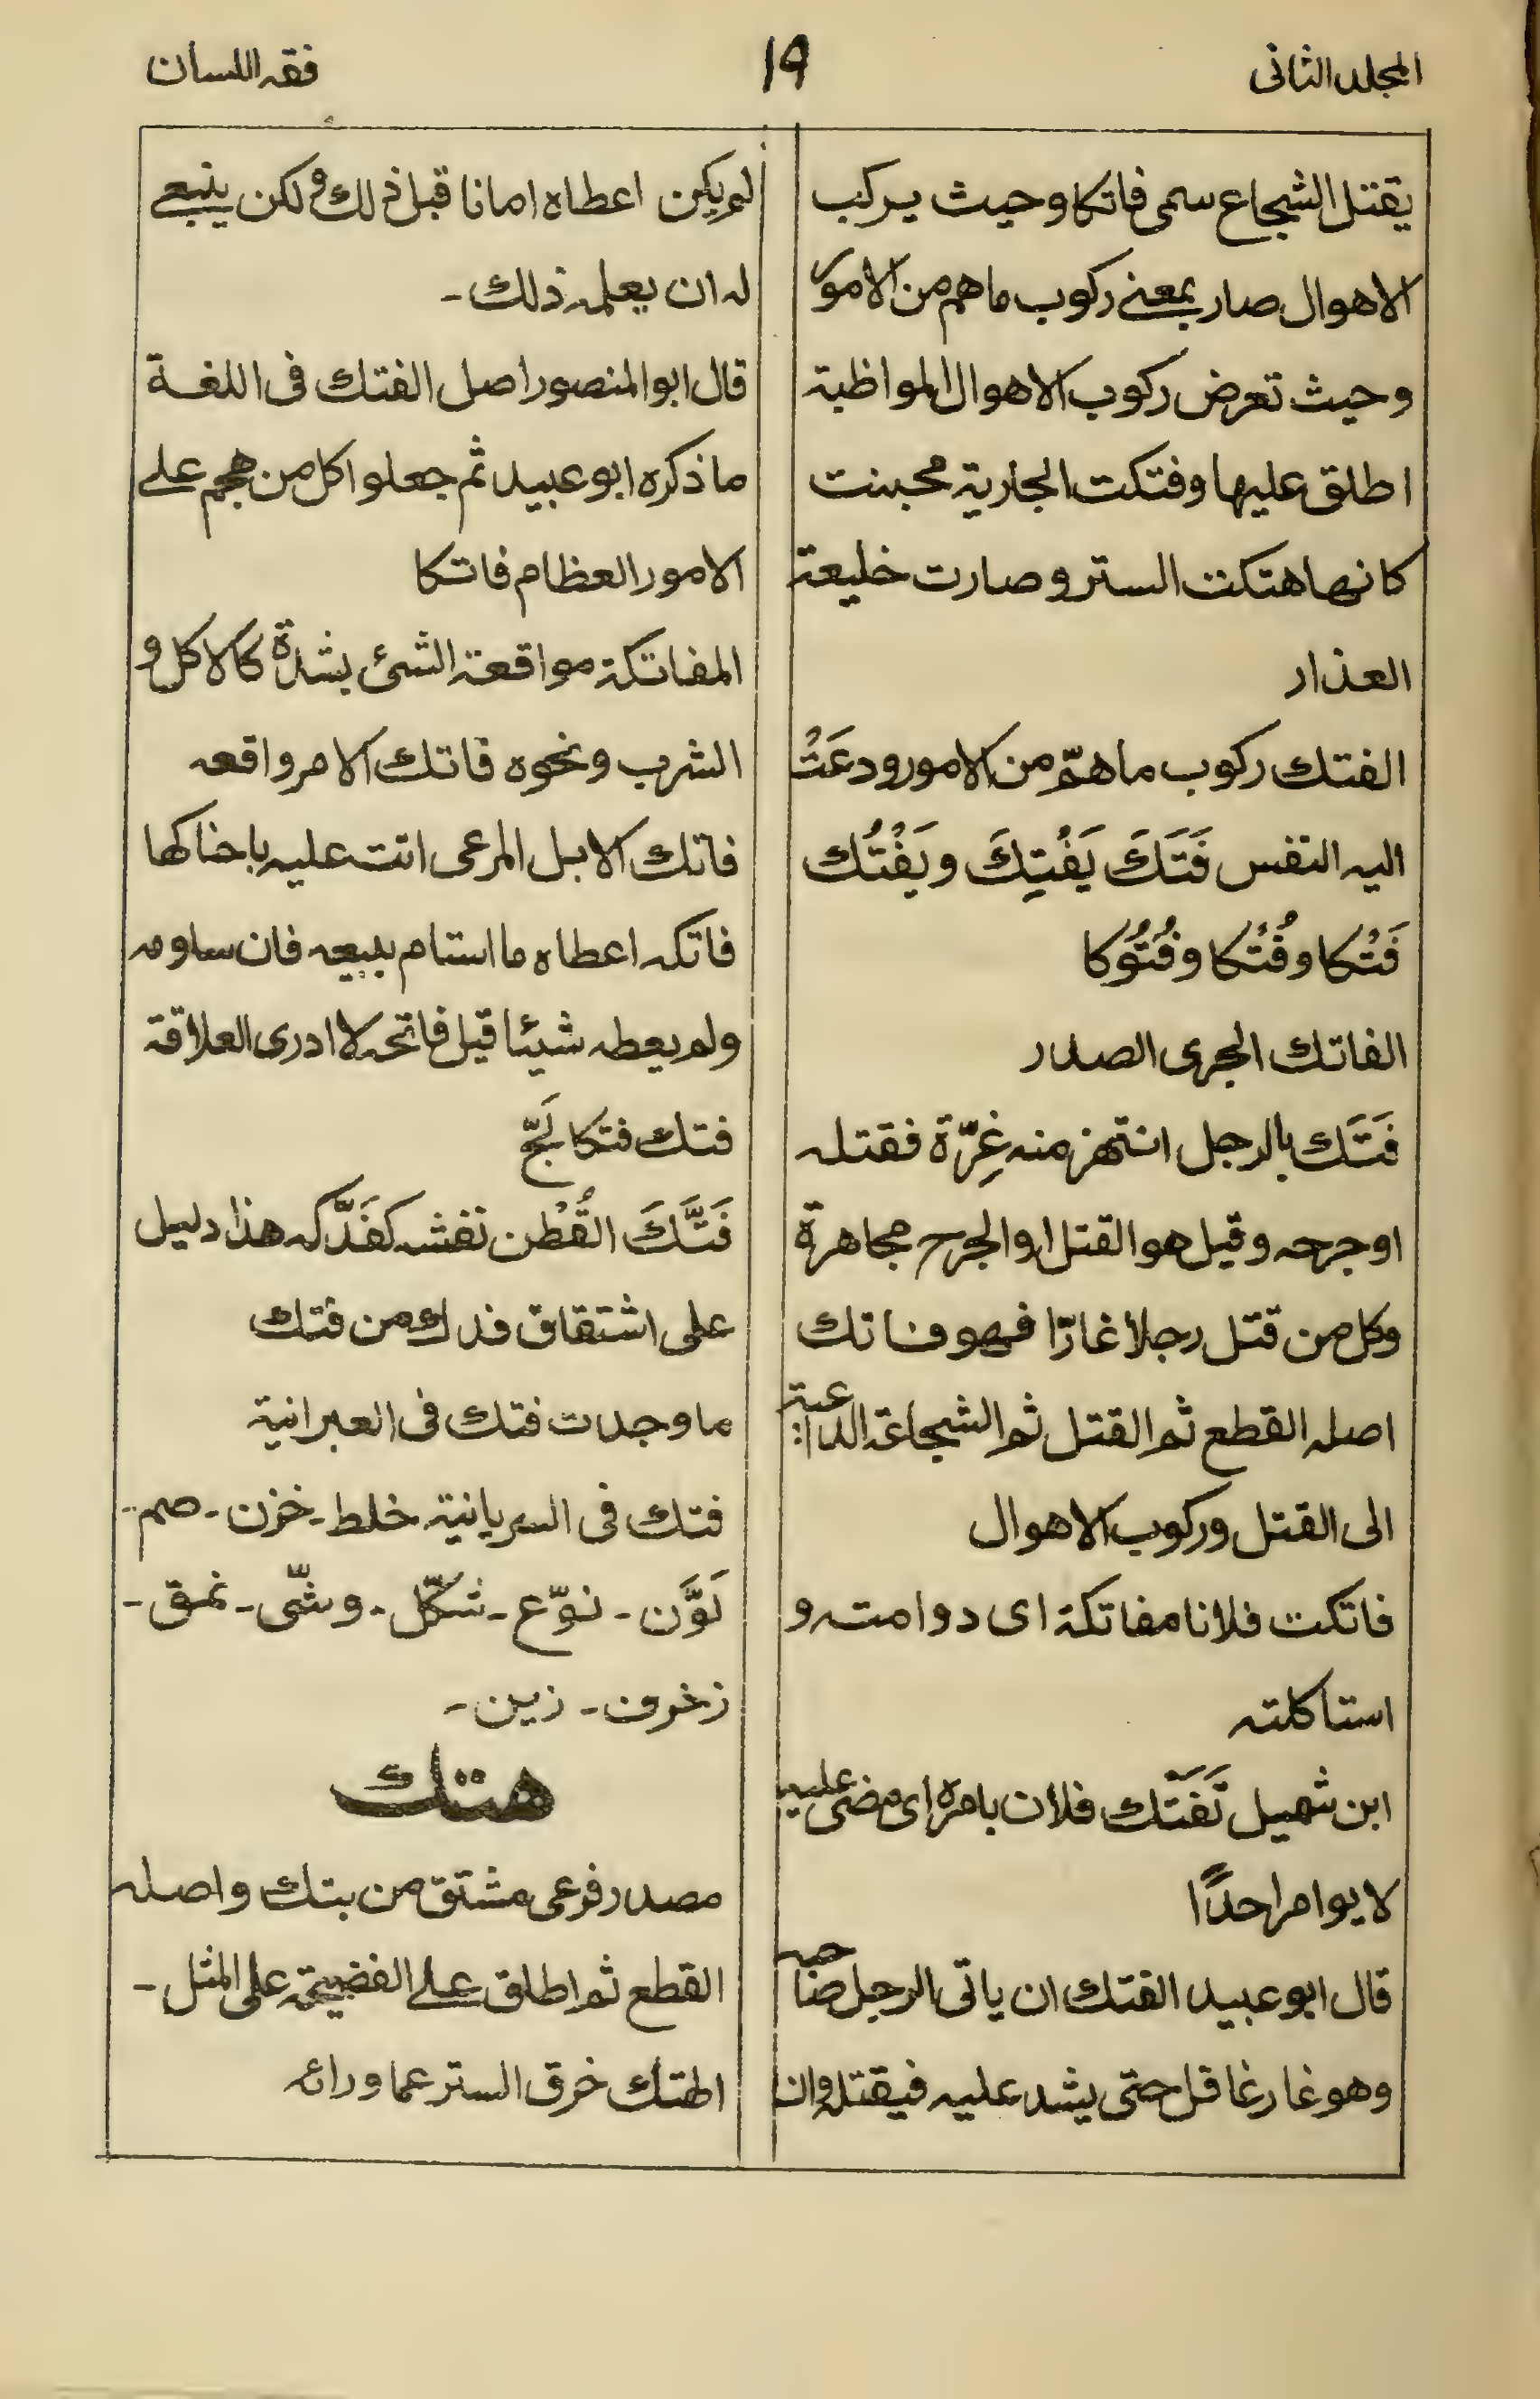 المجلد الثانى
١٩
فقه اللسان
يقتل الشجاع سمى فاتكا وحيث يركب
الاهوال صار بمعنے ركوب ما هم من الامور
وحيث تعرض ركوب الاهوال المواظبة
اطلق عليها وفتكت الجارية مجنت
كانها هتكت الستر وصارت خليعة
العذار
الفتك ركوب ما همّ من الامور ودعَتْ
اليه النفس فَتَكَ يَفْتِكَ ويَفْتُك
فَتْكا وفُتْكا وفُتُوكا
الفاتك الجرى الصدر
فَتَك بالرجل انتهز منه غِرّة فقتله
اوجرحه وقيل هو القتل او الجرح مجاهرة
وكل من قتل رجلا غارّا فهو فاتك
اصله القطع ثم القتل ثم الشجاعة الداعية
الى القتل وركوب الاهوال
فاتكت فلانا مفاتكة اى دوامته و
استاكلته
ابن شميل تَفَتّك فلان بامره اى مضى عليه
لا يوامر احدًا
قال ابو عبيد الفتك ان ياتى الرجل صاحبه
وهو غار غافل حتى يشد عليه فيقتله وان
لم يكن اعطاه امانا قبل ذلك ولكن ينبغے
له ان يعلمه ذلك -
قال ابو المنصور اصل الفتك فى اللغة
ما ذكره ابو عبيد ثم جعلوا كل من هجم علے
الامور العظام فاتكا
المفاتكة مواقعة الشئ بشدة كالاكل و
الشرب ونحوه فاتك الامر واقعه
فاتك الابل المرعى اتت عليه باحناكها
فاتكه اعطاه ما استام ببيعه فان ساومه
ولم يعطه شيئا قيل فاتحه لا ادرى العلاقة
فتك فتكا لَجّ
فَتَّكَ القُطْن نفشه كفَدَّكه هذا دليل
على اشتقاق فدك من فتك
ما وجدت فتك فى العبرانية
فتك فى السريانية خلط - خزن - صم -
لَوَّن - نوّع - شكّل - وشّى - نمق -
زخرف - زين -
هتك
مصدر فرعى مشتق من بتك واصله
القطع ثم اطلق علے الفضيحة على المثل -
الهتك خرق الستر عما ورائه